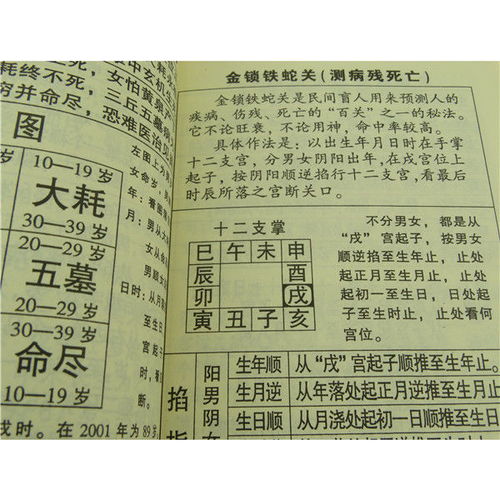 金锁铁蛇关(测病残死亡)
金锁铁蛇关是民间盲人用来预测人的
疾病、伤残、死亡的“百关”之一的秘法。
它不论旺衰,不论用神,命中率较高。
具体作法是:以出生年月日时在手掌
十二支宫,分男女阴阳出年,在戌宫位上
起子,按阴阳顺逆掐行十二支宫,看最后
时辰所落之宫断关口。
十二支掌
巳 午 未 申
辰 酉
卯 戌
寅 丑 子 亥
不分男女,都是从
“戌”宫起子,按男女
顺逆掐至生年止,止处
起正月至生月止,止处
起初一至生日,日处起
子至生时止,止处看何
宫位。
掐
阳
男
阴
女
生年顺 从“戌”宫起子顺推至生年止。
生月逆 从年落处起正月逆推至生月止
生日顺 从月浇处起初一日顺推至生日
耗终不死,
女怕黄泉
穷并命尽,
三丘五墓
恐难医治
图
10—19 岁
大耗
30—39 岁
20—29 岁
五墓
20—29 岁
30—39 岁
命尽
10—19 岁
戌时。在 2001 年为 89 岁
左图上为
女命岁,
年:看
月:男从大
女从命
男顺大
日时:从月
至生日
宫起子
至生时
断。